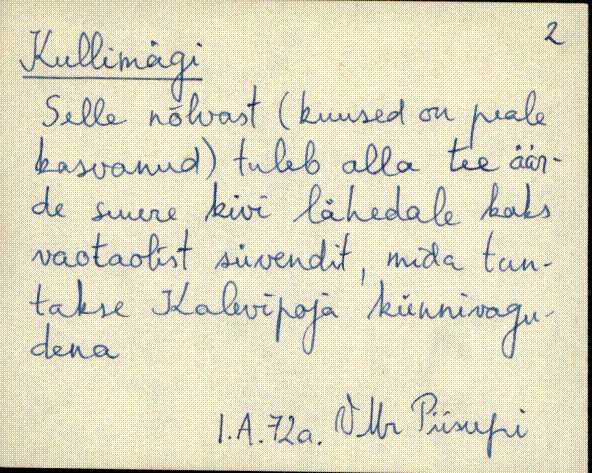 2
Kullimägi
Selle nõlvast (kuused on peale
kasvanud) tuleb alla tee äär-
de suure kivi lähedale kaks
vaotaolist süvendit, mida tun-
takse Kalevipoja künnivagu-
dena
1.A.72a.